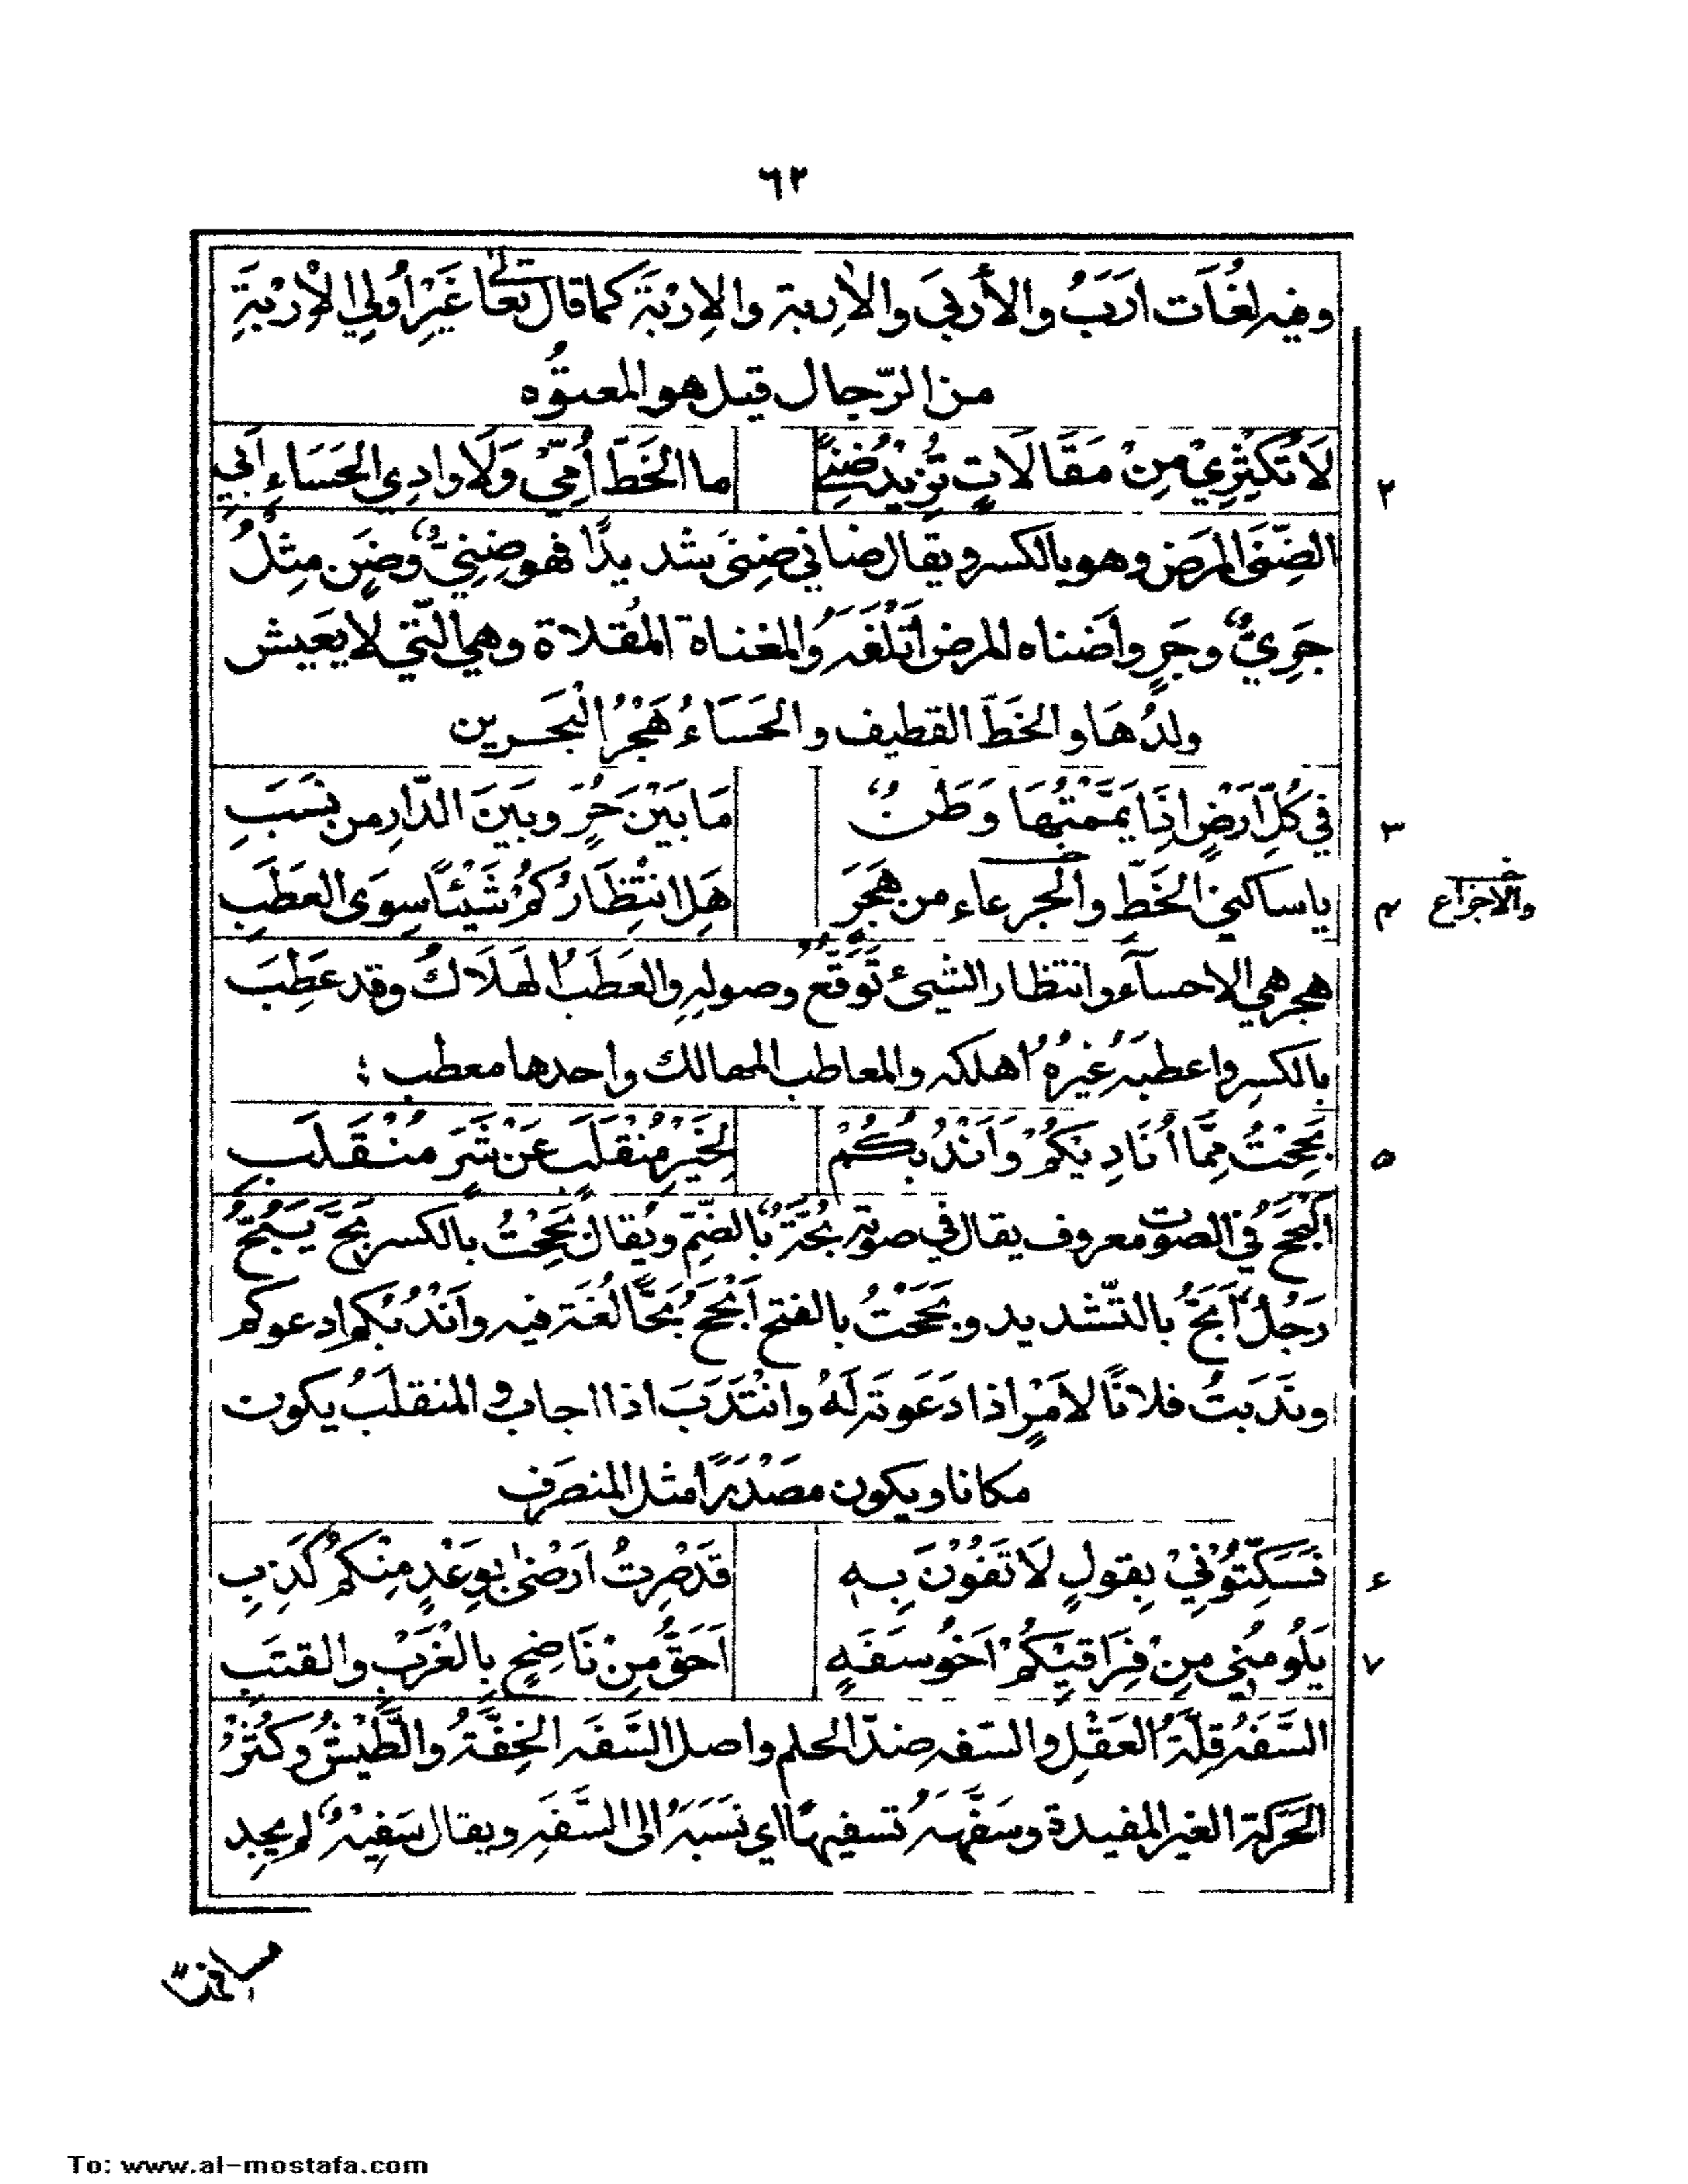 ٦٢
وفيه لغات ارَبُ والأَربىَ والاربة والاِرْبَة كما قال تعالى غَيْرِ اُولِي الْاِرْبَةِ
من الرّجال قيل هو المعتوُه
٢ لاَ تُكثِرِيْ مِنْ مَقَالاَتٍ تَزِيْدُ ضِنىً ما الخَطّ اُمِّيْ وَلَا وادِي الحَسَاءِ اَبي
الضِّنَى المرَض وهو بالكسر ويقال ضانى ضِنىً شديدًا فهو ضِنِيٌّ وضَنٍ مِثلُ
جَرِيٌّ وجَرٍ واَضناه المرض اَتْلَغَهُ والمغناة المُقلاة وهي الّتي لا يَعَيش
ولدُهَا والخَطّ القطيف والحَسَاءُ هَجْرُ الْبَحَرين
٣ في كُلِّ اَرَضٍ اِذَا يَمَّمْتُهَا وَطَنٌ مَا بَيْنَ حُرٍّ وبَيَنَ الدّارِ من نسَبِ
٤ يا ساكني الخَطّ والجرعاء من هَجَرَ هَلِ انتِظَارُكُمُ شَيْئاً سِوَى العَطَبِ
والاجزاع
هجر هي الاحسآء وانتظار الشيئ تَوَقُّعُ وصولِهِ والعَطَبُ الهَلَاكُ وقد عَطِبَ
بالكسر واعطبَهُ غيَرُهُ اهلكه والمعاطب المهالك واحدها معطب ؛
٥ بَحِحْتُ مِمَّا اُنَادِيَكُمْ وَاَنْدُبُكُمْ لِخَيْرِ مُنْقَلَبٍ عَنْ شَرِّ مُنْقَلَبِ
اَلبَحَحُ في الصوت معروف يقال في صوته بُحَّةٌ بالضّم ويُقال بَحِحْتُ بالكسر بَحَّ يَبَحُّ
رَجُلٌ اَبَحُّ بالتّشديد وبَحَحْتُ بالفتح اَبْحَحُ بَحًّا لُغَة فيه واَنْدُبُكم ادعوكم
ونَدَبتُ فلانًا لاَمْرٍ اذا دَعَوتَه لَهُ وانْتَدَبَ اذا اجاب والمنقلَبُ يكون
مكانا ويكون مَصْدَرًا مثل المنصَرَف
٦ تسَكِّتُوُنيْ بِقولٍ لَا تَفُوْنَ بِهِ قَدْ صِرتُ ارَضىٰ بوَعْدٍ مِنْكُمُ كَذِبِ
٧ يَلُومُني مِنْ فِرَاقيِكُمْ اَخُو سَفَهٍ اَحَقُّ مِنْ نَاضِحٍ بِالْغَرْبِ والقتَبِ
السَّفَهُ قِلَّةُ العَقْلِ والسّفه ضدّ الحلم واصل السَّفَه الخِفَّةُ والطَّيْشُ وكَثرْ
الحَرَكة الغير المفيدة وسَفَّهَهُ تسفيهًا اي نَسَبَهُ الى السَّفَهِ ويقال سَفِيْهٌ لم يجد
To: www.al-mostafa.com